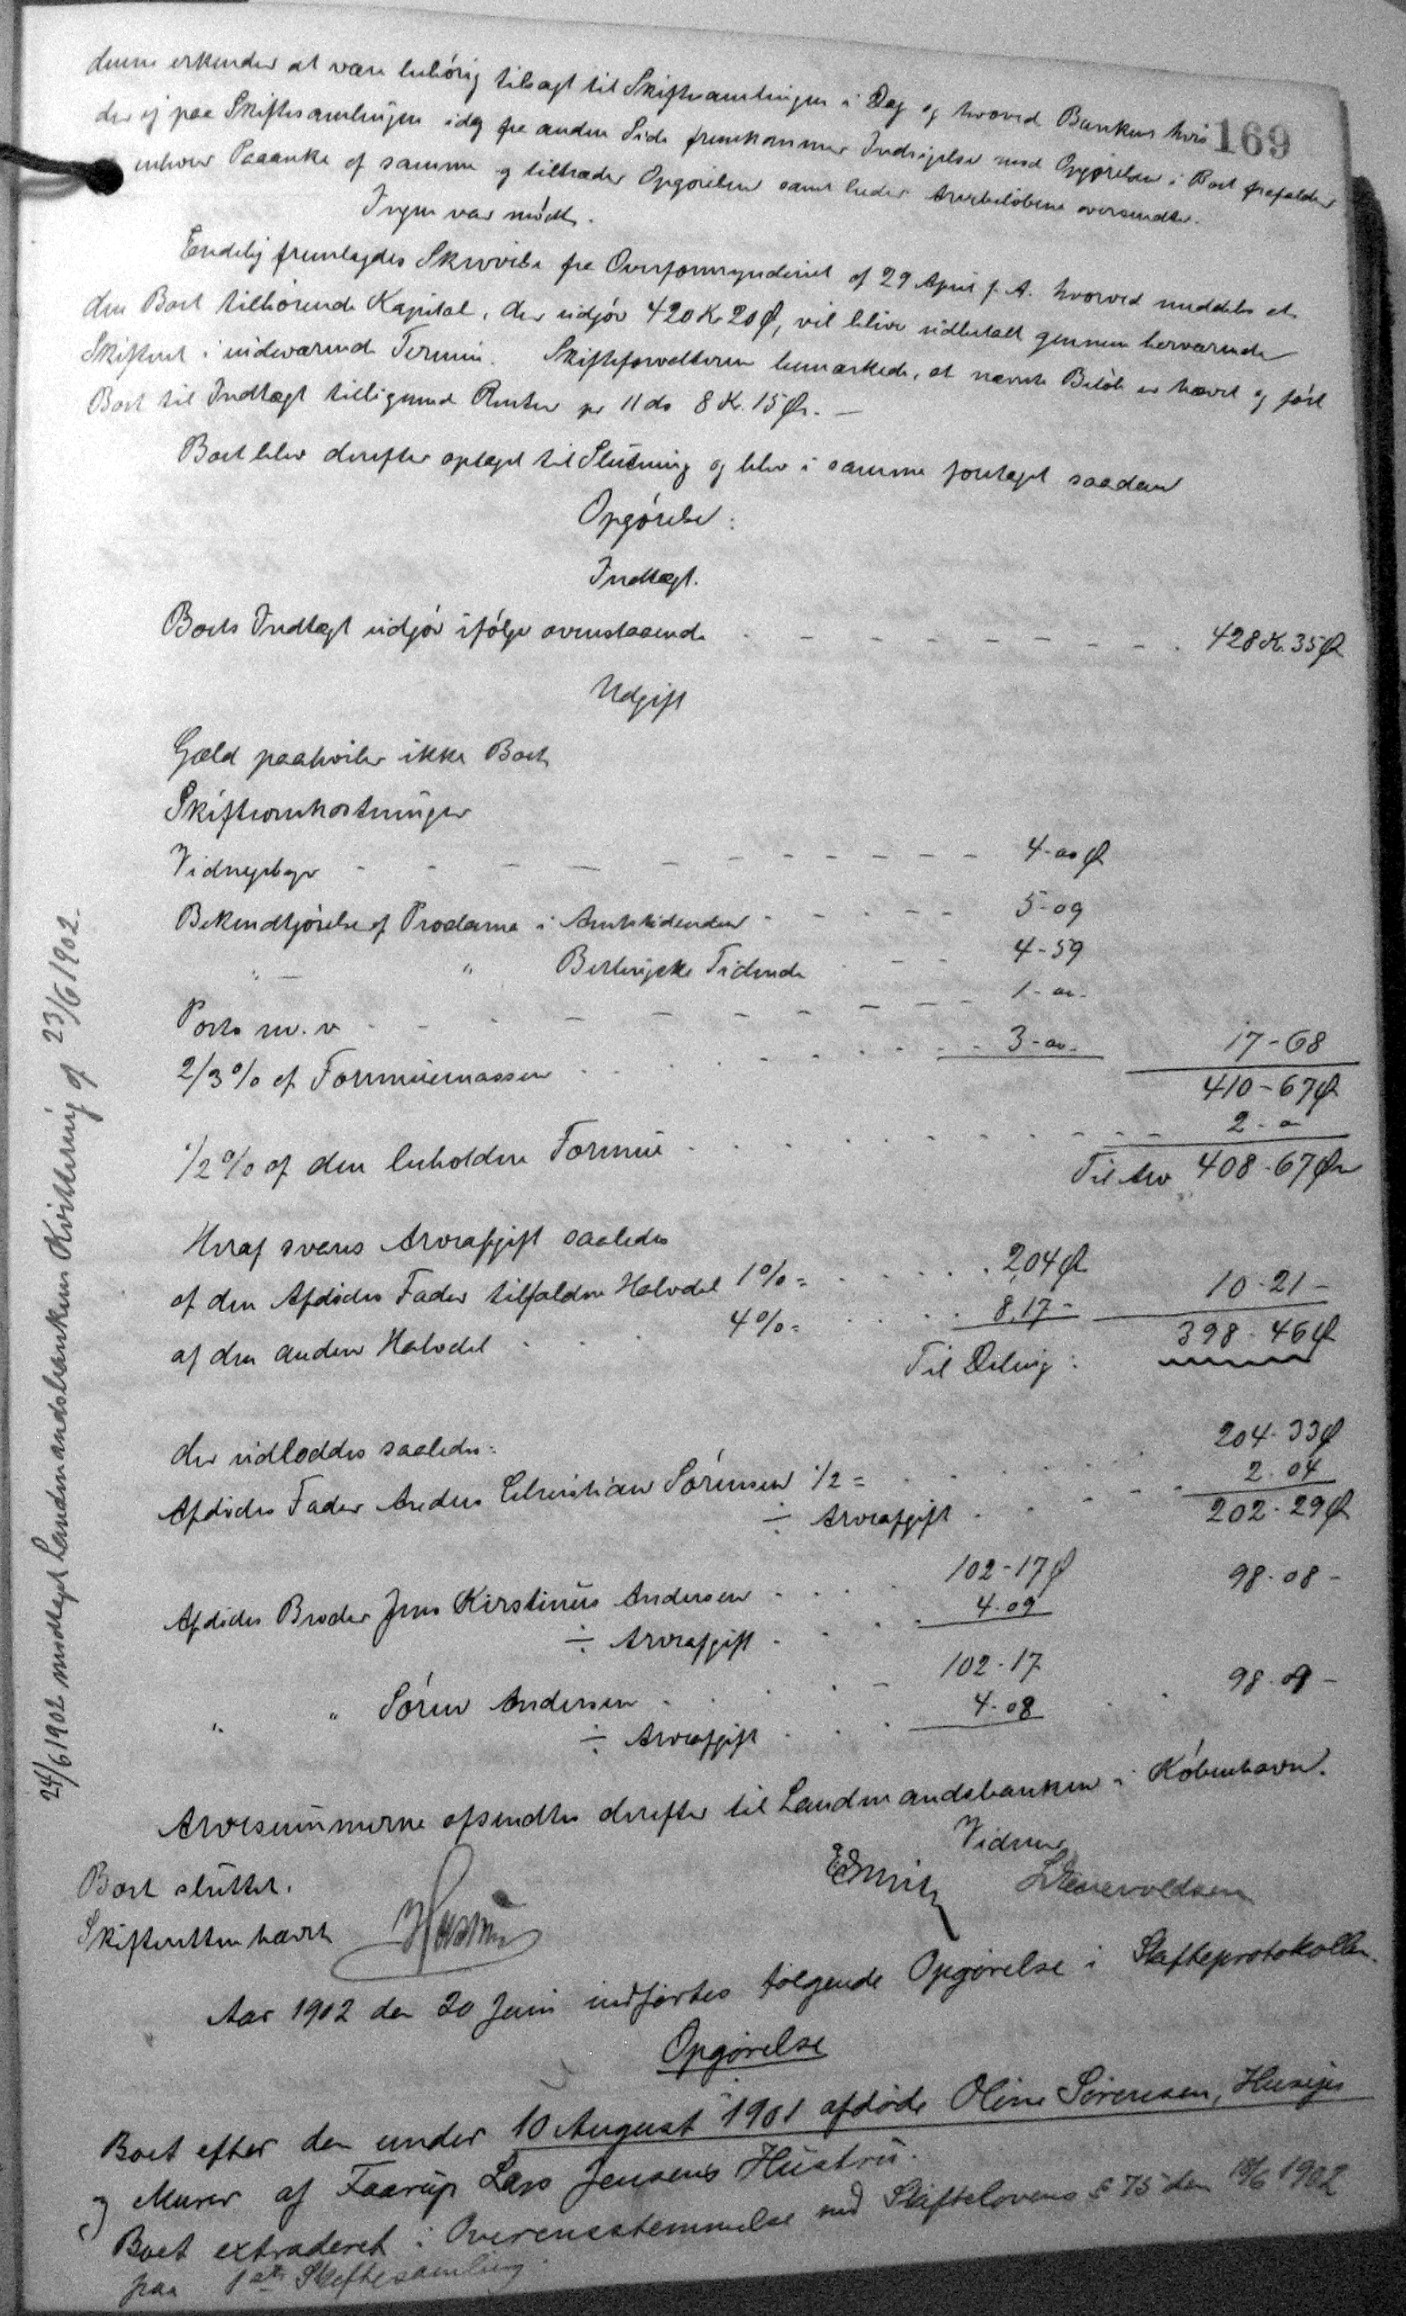 169
denne erkender at være lovlig tilsagt til Skiftesamlingen i Dag og hvorved Banken hvis
der ej paa Skiftesamlingen idag fra anden Side fremkommer Indsigelse mod Opgørelsen i Boet frafalder
enhver Paaanke af samme og tiltræder Opgørelsen samt beder Arvebeløbene oversendte.
Ingen var mødt.
Endelig fremlagdes Skrivelse fra Overformynderiet af 29 April f. A. hvorved meddeles at
den Boet tilhørende Kapital, der udgør 420 Kr 20 Ø, vil blive udbetalt gennem herværende
Skifteret i indeværende Termin. Skifteforvalteren bemærkede, at nævnte Beløb er hævet og ført
Boet til Indtægt tilligemed Renter pr 11 ds 8 Kr. 15 Ør. —
Boet blev derefter optaget til Slutning og blev i samme foretaget saadan
Opgørelse:
Indtægt.
Boets Indtægt udgør ifølge ovenstaaende 428 Kr. 35 Ø
Udgift
Gæld paahviler ikke Boet
Skifteomkostninger
Vidnegebyr 4-00 Ø
Bekendtgørelse af Proclama i Amtstidenden 5-09
" — " Berlingske Tidende 4-59
Porto m. v. 1-00-
2/3 % af Formuemassen 3-00- 17-68
410-67 Ø
1/2 % af den beholdne Formue 2-00
Til Arv 408-67 Ør
Heraf svares Arveafgift saaledes
af den Afdødes Fader tilfaldne Halvdel 1 % = 2,04 Ø
af den anden Halvdel 4 % = 8,17- 10-21-
Til Deling: 398-46 Ø
der udloddes saaledes:
Afdødes Fader Anders Christian Sørensen 1/2 = 204-33 Ø
÷ Arveafgift 2-04
202-29 Ø
Afdødes Broder Jens Kirstinus Andersen 102-17 Ø
÷ Arveafgift 4-09 98-08-
" " Søren Andersen 102-17
÷ Arveafgift 4-08 98-09-
Arvesummerne afsendtes derefter til Landmandsbanken i København.
Boet sluttet. Vidner
Skifteretten hævet
Aar 1902 den 20 Juni indførtes følgende Opgørelse i Skifteprotokollen.
Opgørelse
Boet efter den under 10 August 1901 afdøde Oline Sørensen, Husejer
og Murer af Faarup Lars Jensens Hustru.
Boet extraderet i Overensstemmelse med Skiftelovens § 75 den 18/6 1902
paa 1ste Skiftesamling.
24/6 1902 modtaget Landmandsbankens Kvittering af 23/6 1902.